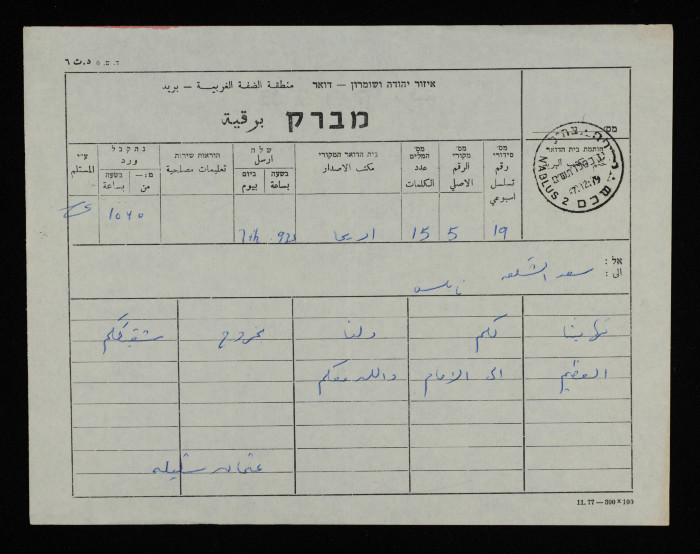 ד. ס. ٥ ٥.ث ٦
איזור יהודה ושומרון – דואר منطقة الضفة الغربية – بريد
מברק برقية
מס׳
חותמת בית הדואר
NABLUS 2 שכם
7.12.79
מס׳ סידורי رقم تسلسل اسبوعي
מס׳ מקורי الرقم الاصلي
מס׳ המלים عدد الكلمات
בית הדואר המקורי مكتب الاصدار
שלח ارسل
ביום بيوم
בשעה بساعة
הוראות שירות تعليمات مصلحية
נתקבל ورد
מ:– من
בשעה بساعة
ע״י المستلم
19 5 15 اريحا 7th 1040
אל : الى :
سعد
نابلس
تهانينا لكم ولنا بخروج شقيقكم
العظيم الى الامام والله معكم
عثمان
11.77 – 300 × 100